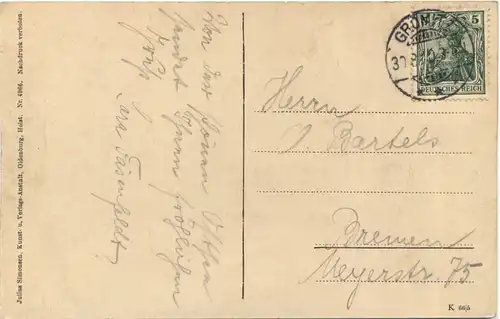 Julius Simonsen, Kunst- u. Verlags-Anstalt, Oldenburg, Holst. Nr. 4966. Nachdruck verboten.
Von der schönen Ostsee
sendet Ihnen fröhlichen
Gruß
5
DEUTSCHES REICH
Herrn
J. Bartels
Bremen
Meyerstr. 75
K 665